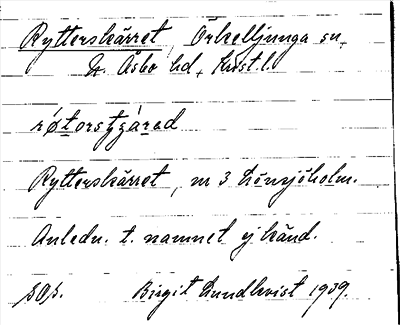 Rytterskärret, Örkelljunga sn,
N. Åsbo hd, Krist. l.
Rytterskärret, nr 3 Lönsjöholm.
Anledn. t. namnet ej känd.
sos. Birgit Lundkvist 1939.